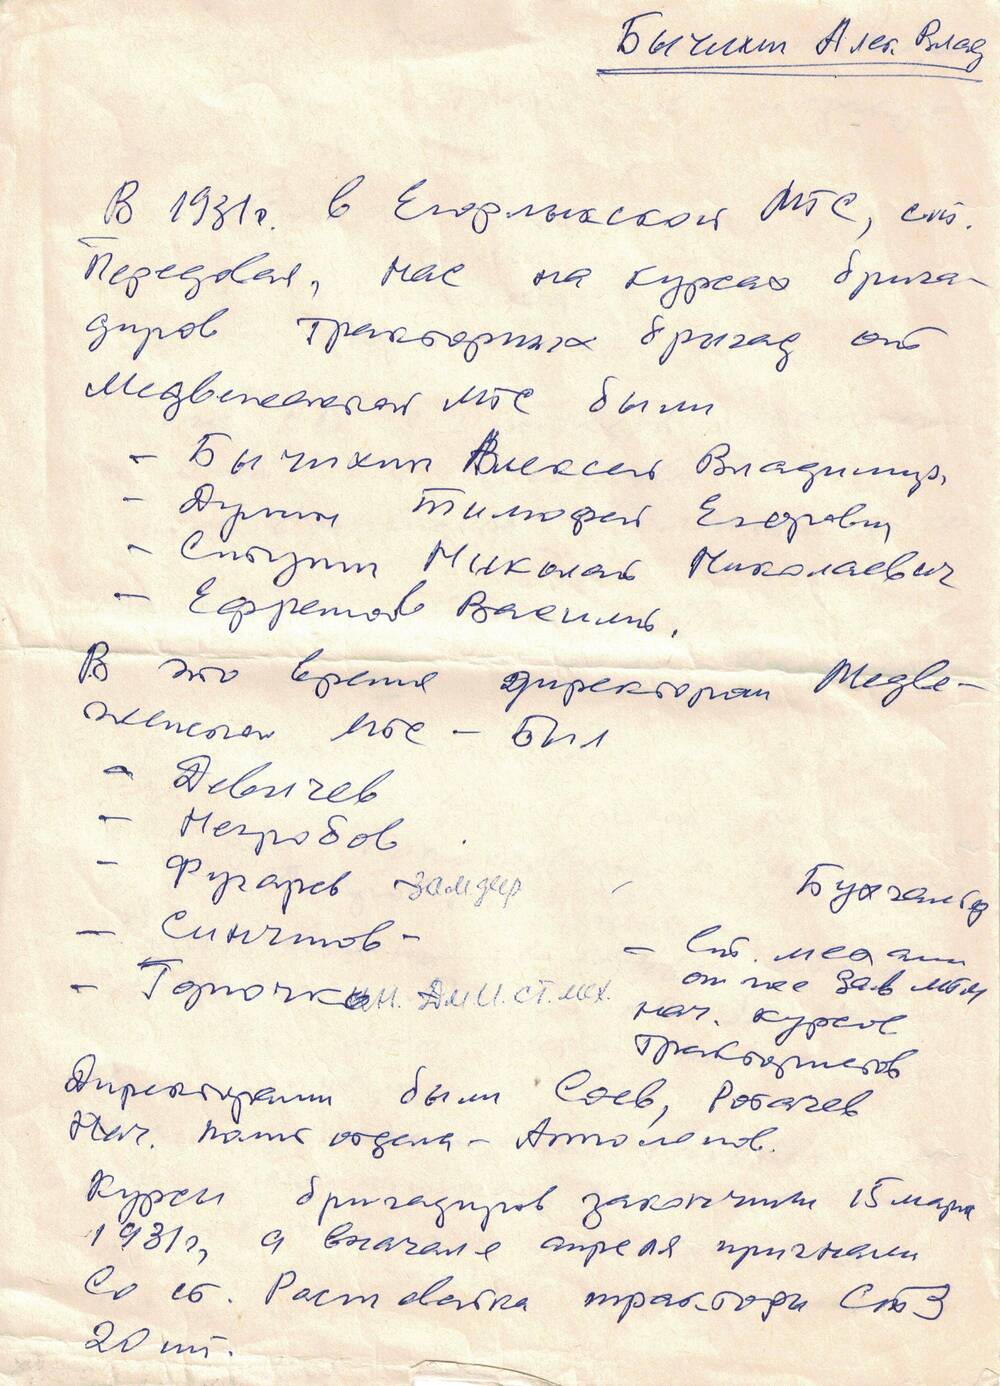 Бычихин Алек. Влад
В 1931г. в Егорлыкской МТС, ст.
Передовая, нас на курсах брига-
диров тракторных бригад от
Медвеженской МТС были
- Бычихин Алексей Владимир.
- Дунин Тимофей Егорович
- Николай Николаевич
- Ефремов Василий.
В это время директором Медве-
женской МТС - был
- Девичев
- Негробов
- Фугарев - замдир
Бухгалтер
-
- ст. механик
он же зав МТМ
- ин. ст. мех.
нач. курсов
трактористов
Директорами были Соев, Рогачев
Нач. полит отдела -
Курсы бригадиров закончили 15 марта
1931г, а вначале апреля пригнали
со ст. Расшеватка трактора СТЗ
20 шт.